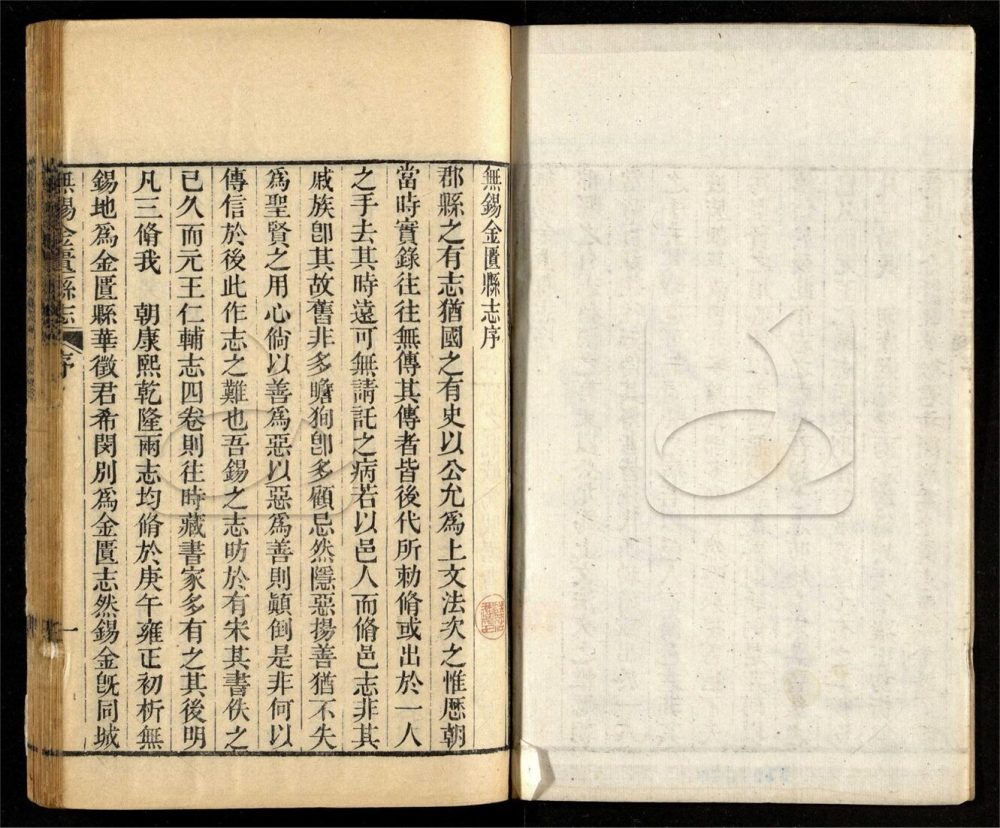 無錫金匱縣志序
郡縣之有志猶國之有史以公允為上文法次之惟厯朝
當時實錄往往無傳其傳者皆後代所勅脩或出於一人
之手去其時遠可無請託之病若以邑人而脩邑志非其
戚族卽其故舊非多瞻狥卽多顧忌然隱惡揚善猶不失
為聖賢之用心倘以善為惡以惡為善則顚倒是非何以
傳信於後此作志之難也吾錫之志昉於有宋其書佚之
已久而元王仁輔志四卷則往時藏書家多有之其後明
凡三脩我　朝康熙乾隆兩志均脩於庚午雍正初析無
錫地為金匱縣華徵君希閔別為金匱志然錫金旣同城
無錫金匱縣志　序　一